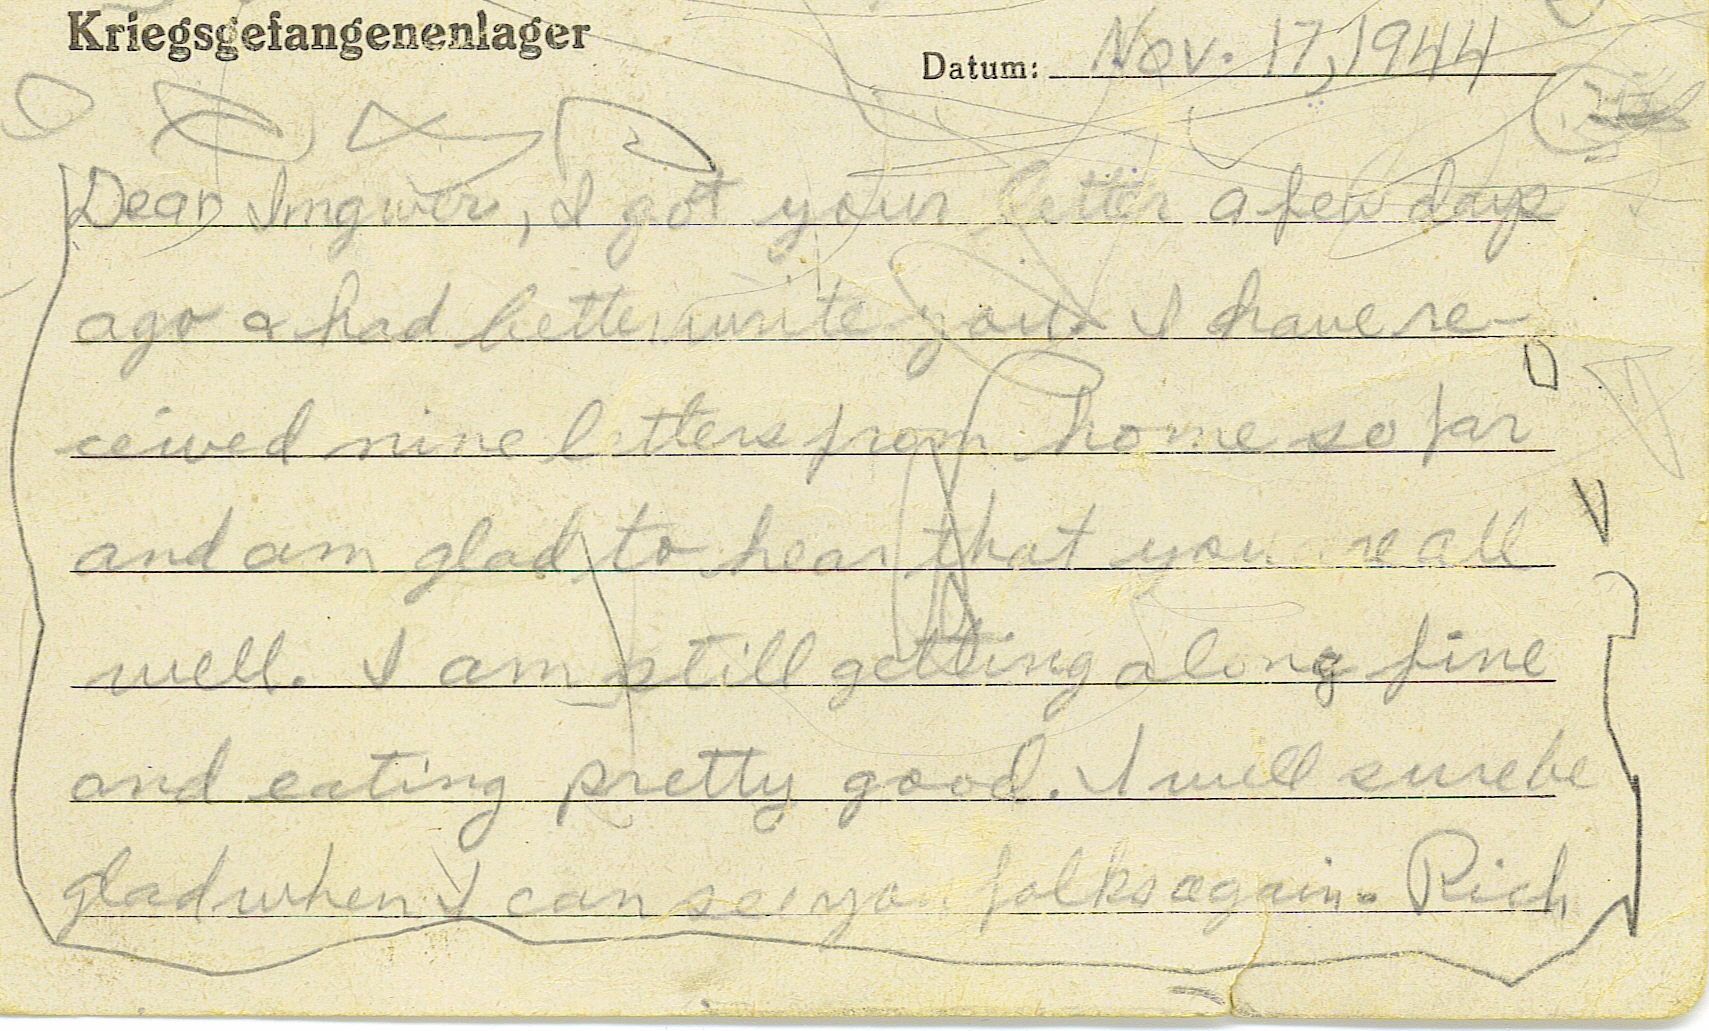 Kriegsgefangenenlager
Datum: Nov. 17, 1944
Dear Imgwer, I got your letter a few days
ago & had better write you. I have re-
ceived nine letters from home so far
and am glad to hear that you are all
well. I am still getting along fine
and eating pretty good. I will sure be
glad when I can see you folks again. Rich